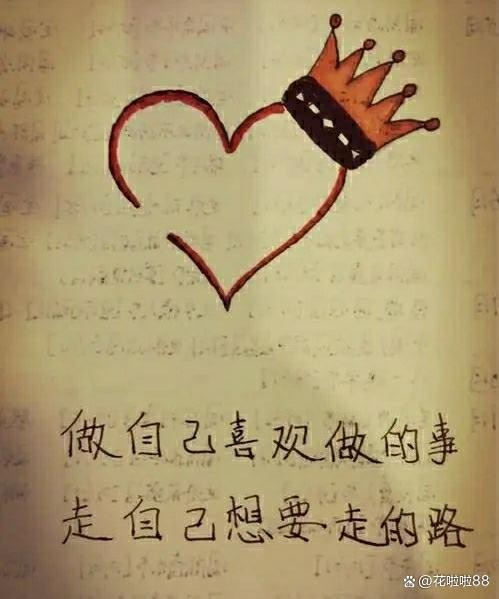 做自己喜观做的事
走自己想要走的路
@花啦啦88